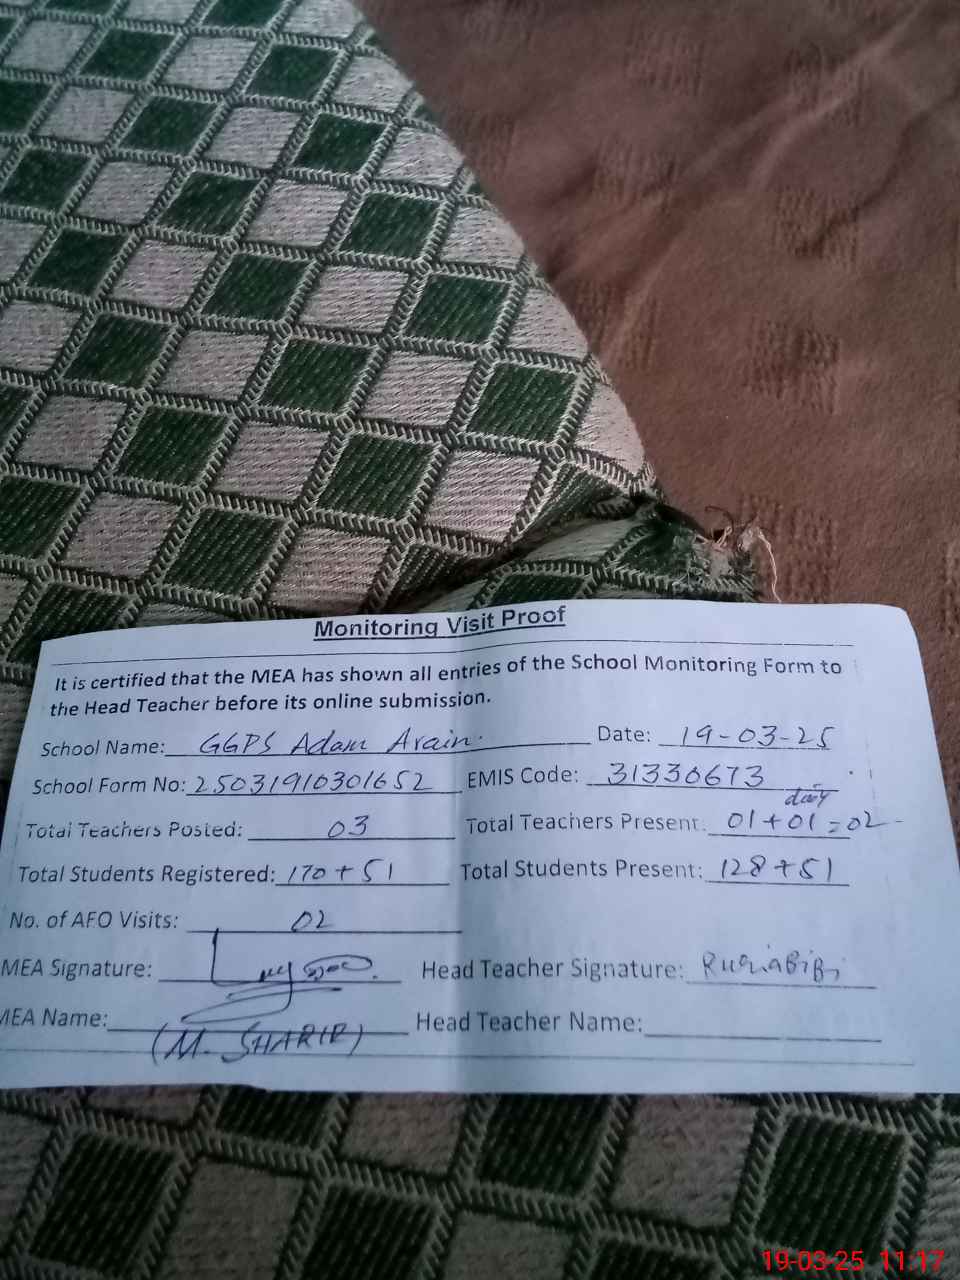 Monitoring Visit Proof
It is certified that the MEA has shown all entries of the School Monitoring Form to
the Head Teacher before its online submission.
School Name: GGPS Adam Arain. Date: 19-03-25
School Form No: 25031910301652 EMIS Code: 31330673
Total Teachers Posted: 03 Total Teachers Present: 01+01=02
Total Students Registered: 170+51 Total Students Present: 128+51
No. of AEO Visits: 02
MEA Signature: Head Teacher Signature:
MEA Name: Head Teacher Name:
(M. SHARIF)
19-03-25 11:17